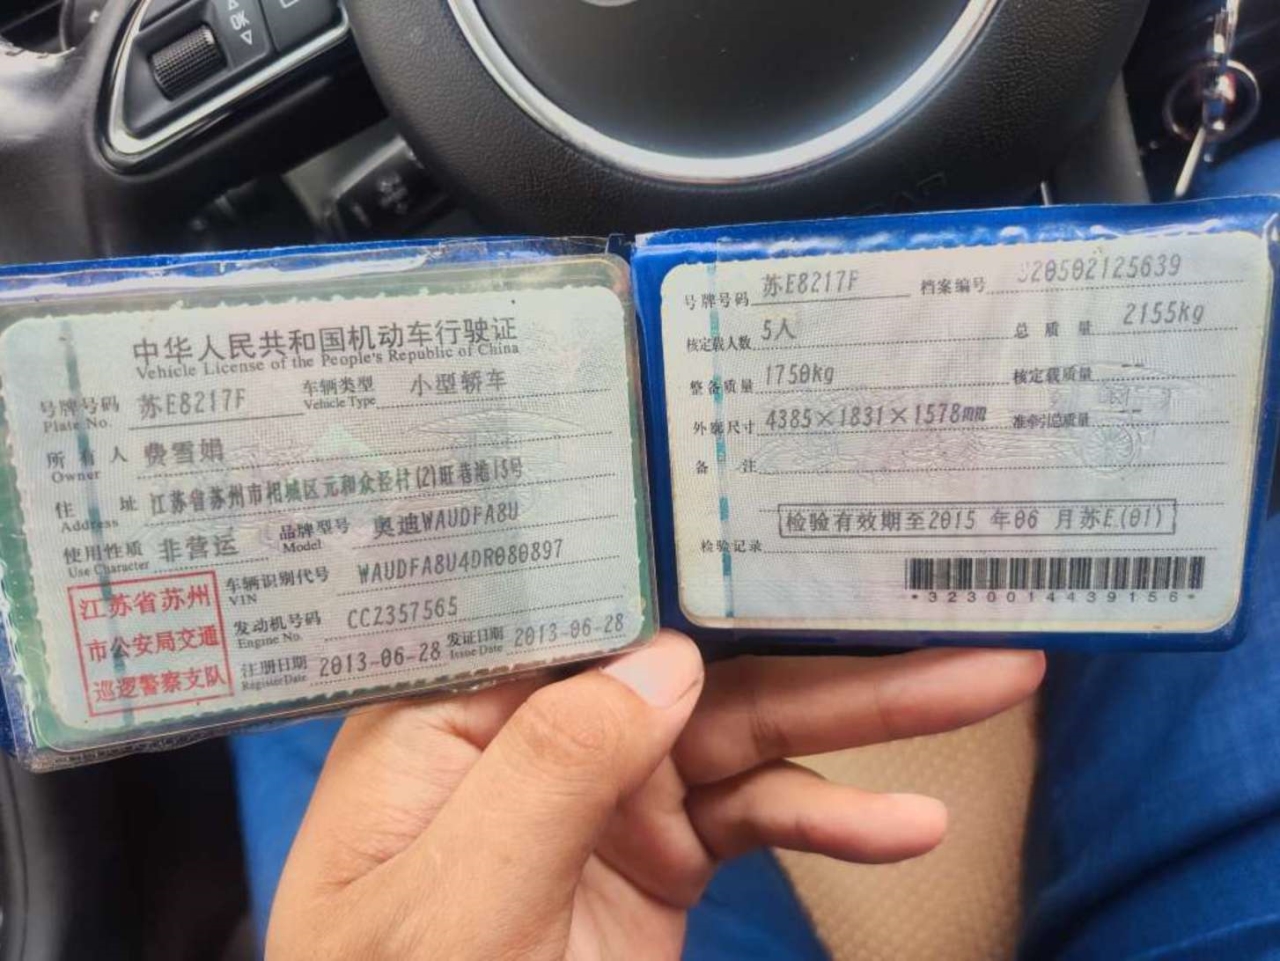 OK
中华人民共和国机动车行驶证
Vehicle License of the People's Republic of China
号牌号码 苏E8217F 车辆类型 小型轿车
Plate No. Vehicle Type
所有人 费雪娟
Owner
住址 江苏省苏州市相城区元和众泾村(2)旺巷港15号
Address
使用性质 非营运 品牌型号 奥迪WAUDFA8U
Use Character Model
江苏省苏州
市公安局交通
巡逻警察支队
车辆识别代号 WAUDFA8U4DR080897
VIN
发动机号码 CCZ357565
Engine No.
注册日期 2013-06-28 发证日期 2013-06-28
Register Date Issue Date
号牌号码 苏E8217F 档案编号 320502125639
核定载人数 5人 总质量 2155kg
整备质量 1750kg 核定载质量 --
外廓尺寸 4385×1831×1578mm 准牵引总质量 --
备注
检验有效期至2015 年06 月苏E.(01)
检验记录
*3230014439156*